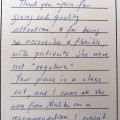 Thank you again for
giving such quality
attention & for being
so accessible & flexible
with patients like me
not "regulars"
Your place is a class
act, and I came all the
way from Malibu on a
recommendation I